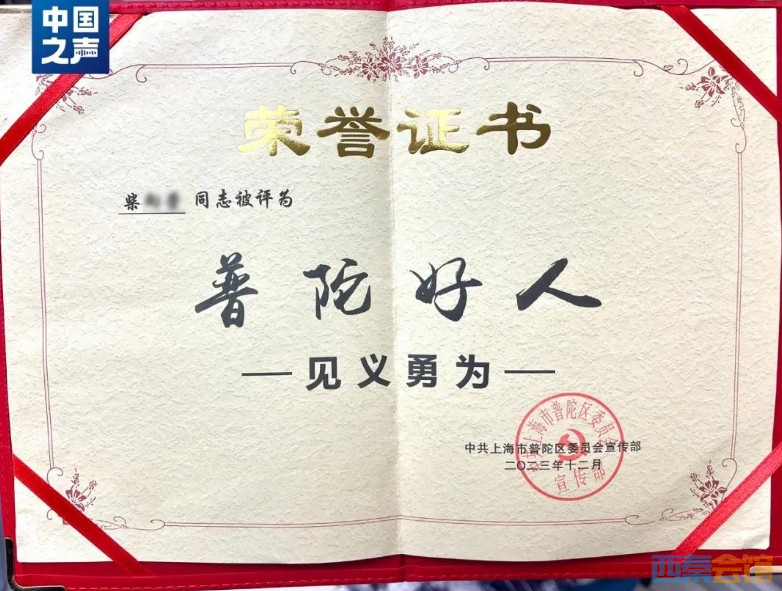 中国
之声
荣誉证书
柴 同志被评为
普陀好人
—见义勇为—
中共上海市普陀区委员会宣传部
二〇二三年十二月
中共上海市普陀区委员会
宣传部
西帛会馆